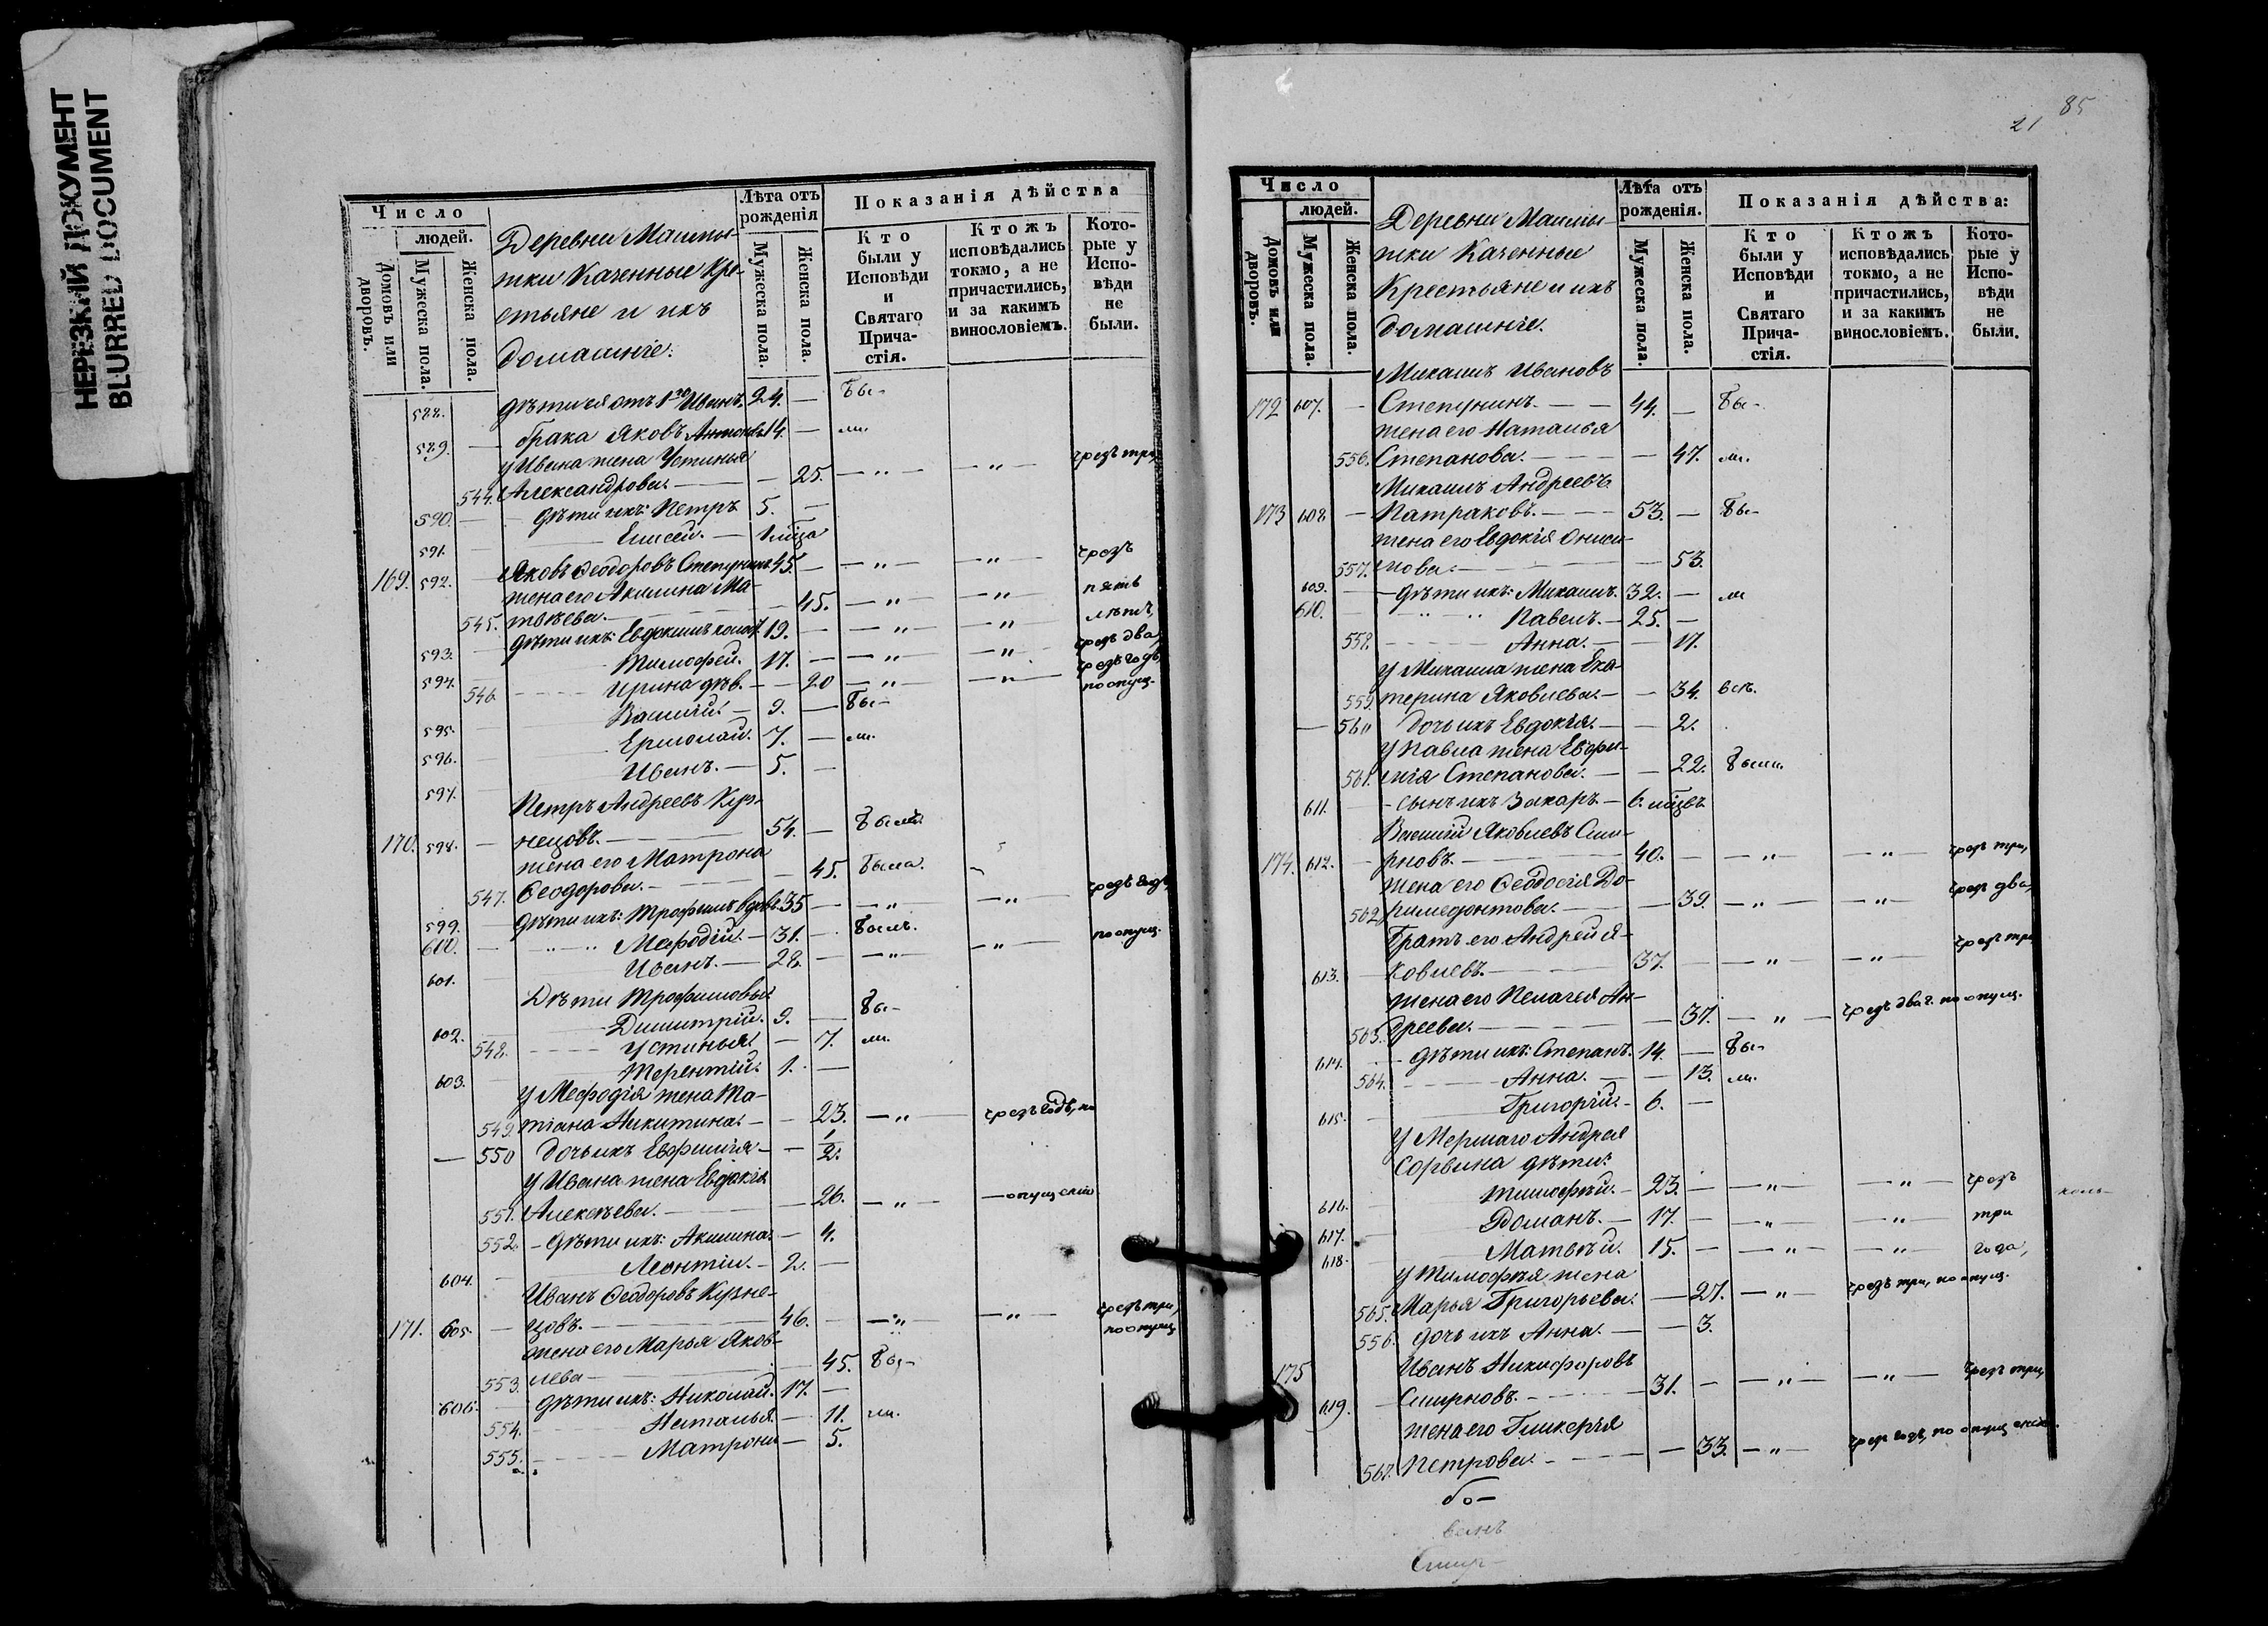 НЕРЕЗКИЙ ДОКУМЕНТ
BLURRED DOCUMENT
Число
людей.
Домовъ или дворовъ.
Мужеска пола.
Женска пола.
Деревни Машпы-
тки Казенные Кре-
стьяне и ихъ
домашніе:
Лѣта отъ рожденія
Мужеска пола.
Женска пола.
Показанія дѣйства
Кто были у Исповѣди и Святаго Прича- стія.
Ктожъ исповѣдались токмо, а не причастились, и за какимъ винословіемъ.
Кото- рые у Испо- вѣди не были.
588. дѣти ея отъ 1го Иванъ. 24. — бы-
589. — брака Яковъ 14. — ли.
у Ивана жена Устинья
544. Александрова. — 25. — „ — — „ — чрезъ три,
590. — дѣти ихъ: Петръ 5. —
591. Елисей. — 1 мѣсца
169. 592. Яковъ Ѳеодоровъ Степунинъ 45. — — „ — — „ — чрезъ
жена его Акилина Ма-
545. твѣева. — 45. — „ — — „ — пять
593. дѣти ихъ: Евдокимъ холос. 19. — — „ — — „ — лѣтъ,
594. Тимофей. 17. — — „ — — „ — чрезъ два,
546. Ирина дѣв. — 20 — „ — — „ — чрезъ годъ,
по опущ.
595. Василій. — 9. — бы-
596. Ермолай. 7. — ли.
597. Иванъ. — 5. —
Петръ Андреевъ Куз-
170. 598. — нецовъ. — 54. — былъ.
жена его Матрона
547. Ѳеодорова. — 45. была.
599. дѣти ихъ: Трофимъ вдовъ. 35 — — „ — — „ чрезъ годъ,
600. — „ — „ Меѳодій. — 31. — былъ.
601. Иванъ. — 28. — — „ — — „ — по опущ.
Дѣти Трофимовы:
602. Димитрій. 9. — бы-
548. Устинья. — 7. ли.
603. Терентій. 1. —
у Меѳодія жена Та-
549. тіана Никитина. — 23. — „ — чрезъ годъ, по
— 550 дочь ихъ Евфимія — 1/2.
у Ивана жена Евдокія
551. Алексѣева. — 26. — „ — — опущенію
552. — дѣти ихъ: Акилина. — 4.
604. Леонтій. — 2. —
Иванъ Ѳеодоровъ Кузне-
171. 605. — цовъ. — 46. — — „ — — „ — чрезъ три,
по опущ.
жена его Марья Яков-
553. лева — 45. бы-
606. — дѣти ихъ: Николай. 17. —
554. Наталья. — 11. ли.
555. Матрона — 5.
85
21
Число
людей.
Домовъ или дворовъ.
Мужеска пола.
Женска пола.
Деревни Машпы-
тки Казенные
Крестьяне и ихъ
домашніе.
Лѣта отъ рожденія.
Мужеска пола.
Женска пола.
Показанія дѣйства:
Кто были у Исповѣди и Святаго Прича- стія.
Ктожъ исповѣдались токмо, а не причастились, и за какимъ винословіемъ.
Кото- рые у Испо- вѣди не были.
Михаилъ Ивановъ
172 607. — Степунинъ. — 44. — бы-
жена его Наталья
556. Степанова. — 47. ли.
Михаилъ Андреевъ
173 608 — Патраковъ. — 53. — бы-
жена его Евдокія Ониси-
557. мова. — 53.
609. — дѣти ихъ: Михаилъ. 32. — ли
610. „ „ Павелъ. — 25. —
558. Анна. — 17.
у Михаила жена Ека-
559. терина Яковлева. — 34. всѣ.
— 560 дочь ихъ Евдокія. — 2.
у Павла жена Евфи-
561. мія Степанова. — 22. были.
611. — сынъ ихъ Захаръ. — 6. мѣсцвъ
Василій Яковлевъ Сми-
174. 612. — рновъ. — 40. — — „ — — „ — чрезъ три,
жена его Ѳеодосія До-
562. римедонтова. — 39. — „ — — „ — чрезъ два,
братъ его Андрей Я-
613. — ковлевъ. — 37. — — „ — — „ — чрезъ три
жена его Пелагея Ан-
563. дреева. — 37. — „ — чрезъ два г. по опущ.
614. — дѣти ихъ: Степанъ. 14. — бы-
564. Анна. — 13. ли.
615. Григорій. — 6. —
у Мершаго Андрея
Сорвина дѣти:
616. Тимофѣй. — 23. — — „ — — „ — чрезъ
617. Романъ. — 17. — — „ — — „ — три
618. Матвѣй. 15. — — „ — — „ года,
у Тимофѣя жена
565. Марья Григорьева. — 27. — „ — чрезъ три, по опущ.
556. дочь ихъ Анна. — 3.
175 Иванъ Никифоровъ
619. Смирновъ. — 31. — — „ — — „ — чрезъ три,
жена его Гликерія
567. Петрова. — 33. — „ — чрез годъ, по опущенію.